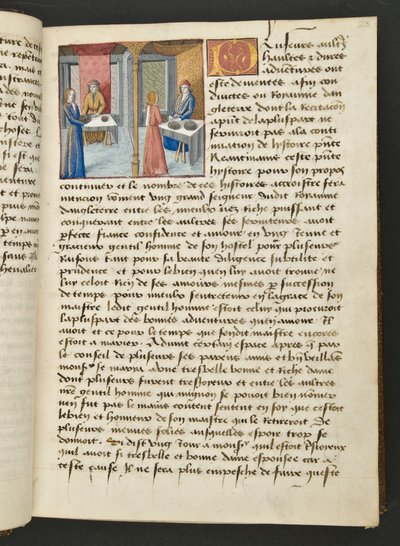 23
Plusieurs aultres
haultes et dures
adventures ont
este demenees con
duictes ou royaume dan
gleterre dont la recitacion
apnt de la pluspart ne
serviroit pas a la conti
nuation de listoire pnte
Neantmains ceste pnte
histoire pour son propos
continuer et le nombre de ces histoires accroistre fera
mencion coment ung grant seigneur dudit Royaume
dangleterre entre les mieulx nez riche puissant et
conquerant entre les aultres ses serviteurs avoit
pfecte fiance confidence et amour en ung Jeune et
gracieux gentil homme de son hostel pour plusieurs
Raisons tant pour sa diligence subtilite et
prudence et pour le bien quen luy avoit trouve ne
luy celoit Rien de ses amours mesmes p succession
de temps pour mieulx sentretenir en la grace de son
maistre ledit gentil homme estoit celuy qui procuroit
la pluspart des bonnes adventures quen amour Il
avoit et ce pour le temps que sondit maistre encores
estoit a marier Advint certain espace apres q par
le conseil de plusieurs ses parens amis et bienveillans
monsr se maria a une tresbelle bonne et riche dame
dont plusieurs furent tresioyeux et entre les aultres
nre gentil homme qui mignon se povoit bien nomer
ney fut pas le mains content sentent en soy que cestoit
le bien et honneur de son maistre qui le retireroit De
plusieurs menues folies ausquelles espoir trop se
donnoit Si dist ung Jour a monsr quil estoit tresioyeux
quil avoit si tresbelle et bonne dame espousee car a
ceste cause Il ne sera plus empesche de faire queste